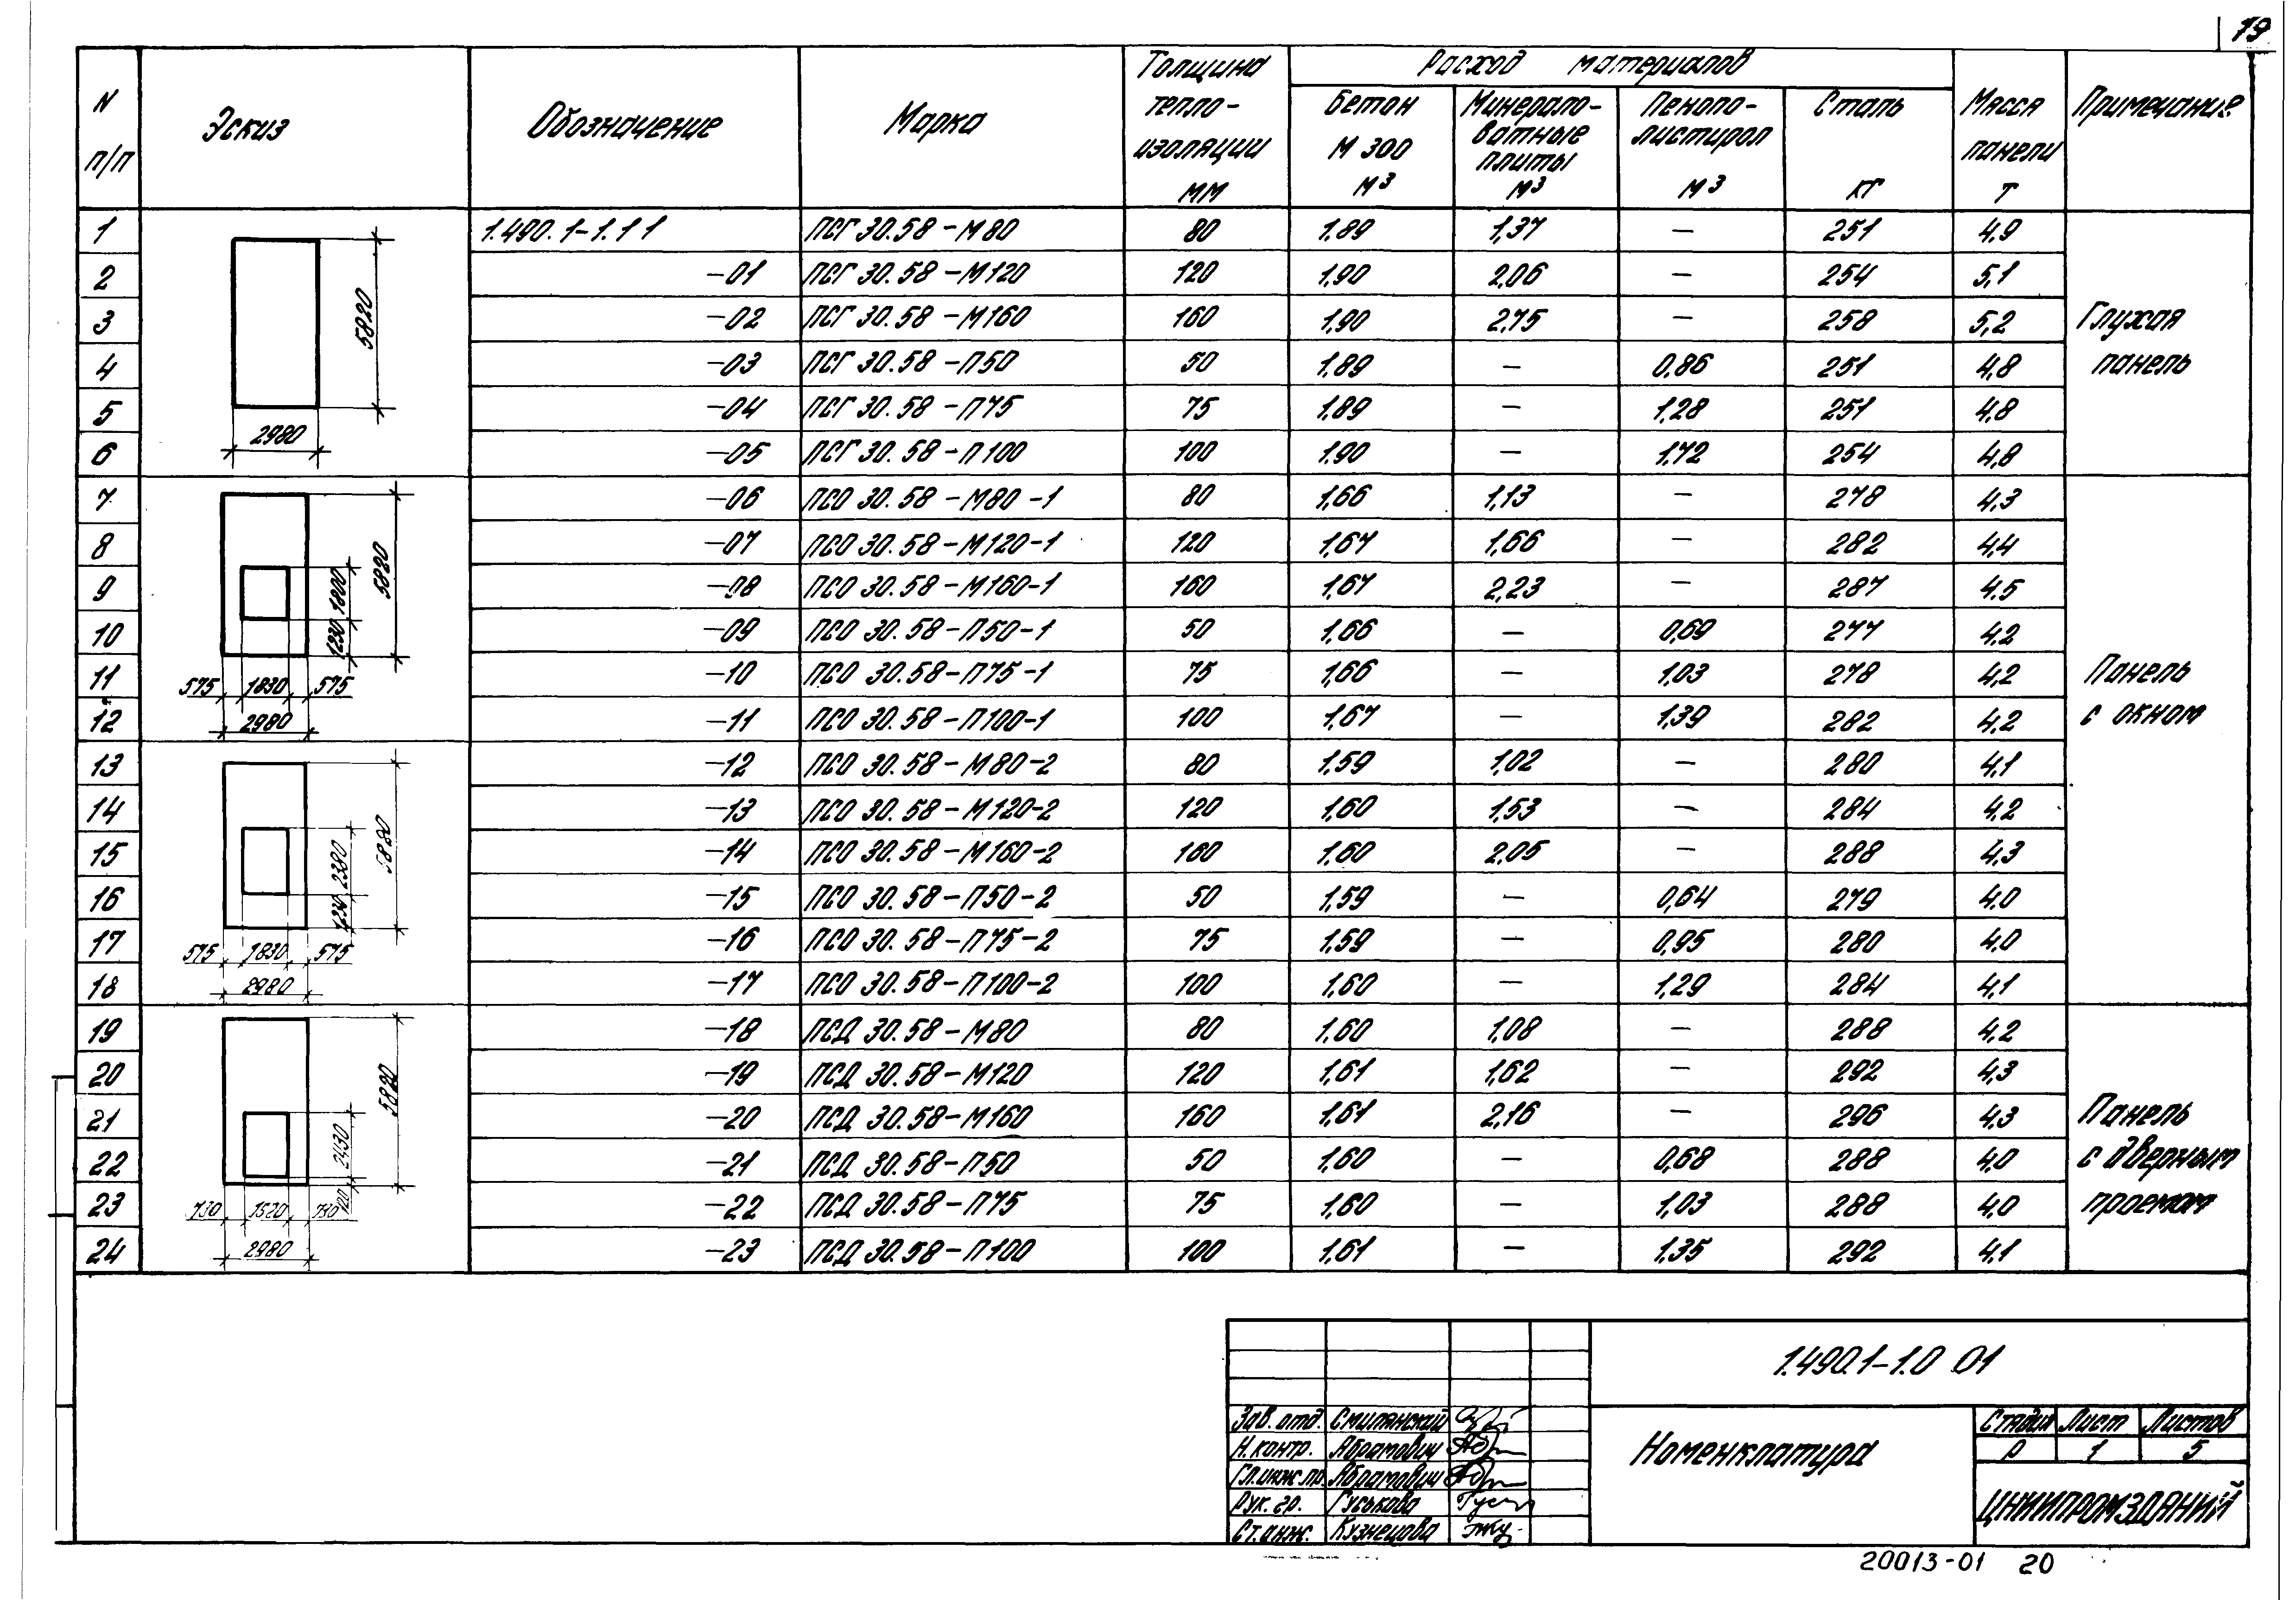 19
N п/п Эскиз Обозначение Марка Толщина тепло-изоляции мм Расход материалов Масса панели т Примечание
Бетон М 300 м³ Минерало-ватные плиты м³ Пенопо-листирол м³ Сталь кг
1 1.490.1-1.1 1 ПСГ 30.58-М80 80 1,89 1,37 — 251 4,9
2 -01 ПСГ 30.58-М120 120 1,90 2,06 — 254 5,1
3 -02 ПСГ 30.58-М160 160 1,90 2,75 — 258 5,2 Глухая
4 -03 ПСГ 30.58-П50 50 1,89 — 0,86 251 4,8 панель
5 -04 ПСГ 30.58-П75 75 1,89 — 1,28 251 4,8
6 -05 ПСГ 30.58-П100 100 1,90 — 1,72 254 4,8
5820
2980
7 -06 ПСО 30.58-М80-1 80 1,66 1,13 — 278 4,3
8 -07 ПСО 30.58-М120-1 120 1,67 1,66 — 282 4,4
9 -08 ПСО 30.58-М160-1 160 1,67 2,23 — 287 4,5
10 -09 ПСО 30.58-П50-1 50 1,66 — 0,69 277 4,2
11 -10 ПСО 30.58-П75-1 75 1,66 — 1,03 278 4,2 Панель
12 -11 ПСО 30.58-П100-1 100 1,67 — 1,39 282 4,2 с окном
5820
1230 1800
575 1830 575
2980
13 -12 ПСО 30.58-М80-2 80 1,59 1,02 — 280 4,1
14 -13 ПСО 30.58-М120-2 120 1,60 1,53 — 284 4,2
15 -14 ПСО 30.58-М160-2 160 1,60 2,05 — 288 4,3
16 -15 ПСО 30.58-П50-2 50 1,59 — 0,64 279 4,0
17 -16 ПСО 30.58-П75-2 75 1,59 — 0,95 280 4,0
18 -17 ПСО 30.58-П100-2 100 1,60 — 1,29 284 4,1
5820
1230 2380
575 1830 575
2980
19 -18 ПСД 30.58-М80 80 1,60 1,08 — 288 4,2
20 -19 ПСД 30.58-М120 120 1,61 1,62 — 292 4,3
21 -20 ПСД 30.58-М160 160 1,61 2,16 — 296 4,3 Панель
22 -21 ПСД 30.58-П50 50 1,60 — 0,68 288 4,0 с дверным
23 -22 ПСД 30.58-П75 75 1,60 — 1,03 288 4,0 проемом
24 -23 ПСД 30.58-П100 100 1,61 — 1,35 292 4,1
5820
120 2430
730 1520 730
2980
1.490.1-1.0 01
Зав. отд. Смилянский
Н. контр. Абрамович
Гл.инж.пр. Абрамович
Рук. гр. Гуськова
Ст.инж. Кузнецова
Номенклатура
Стадия Лист Листов
Р 1 5
ЦНИИПРОМЗДАНИЙ
20013-01 20